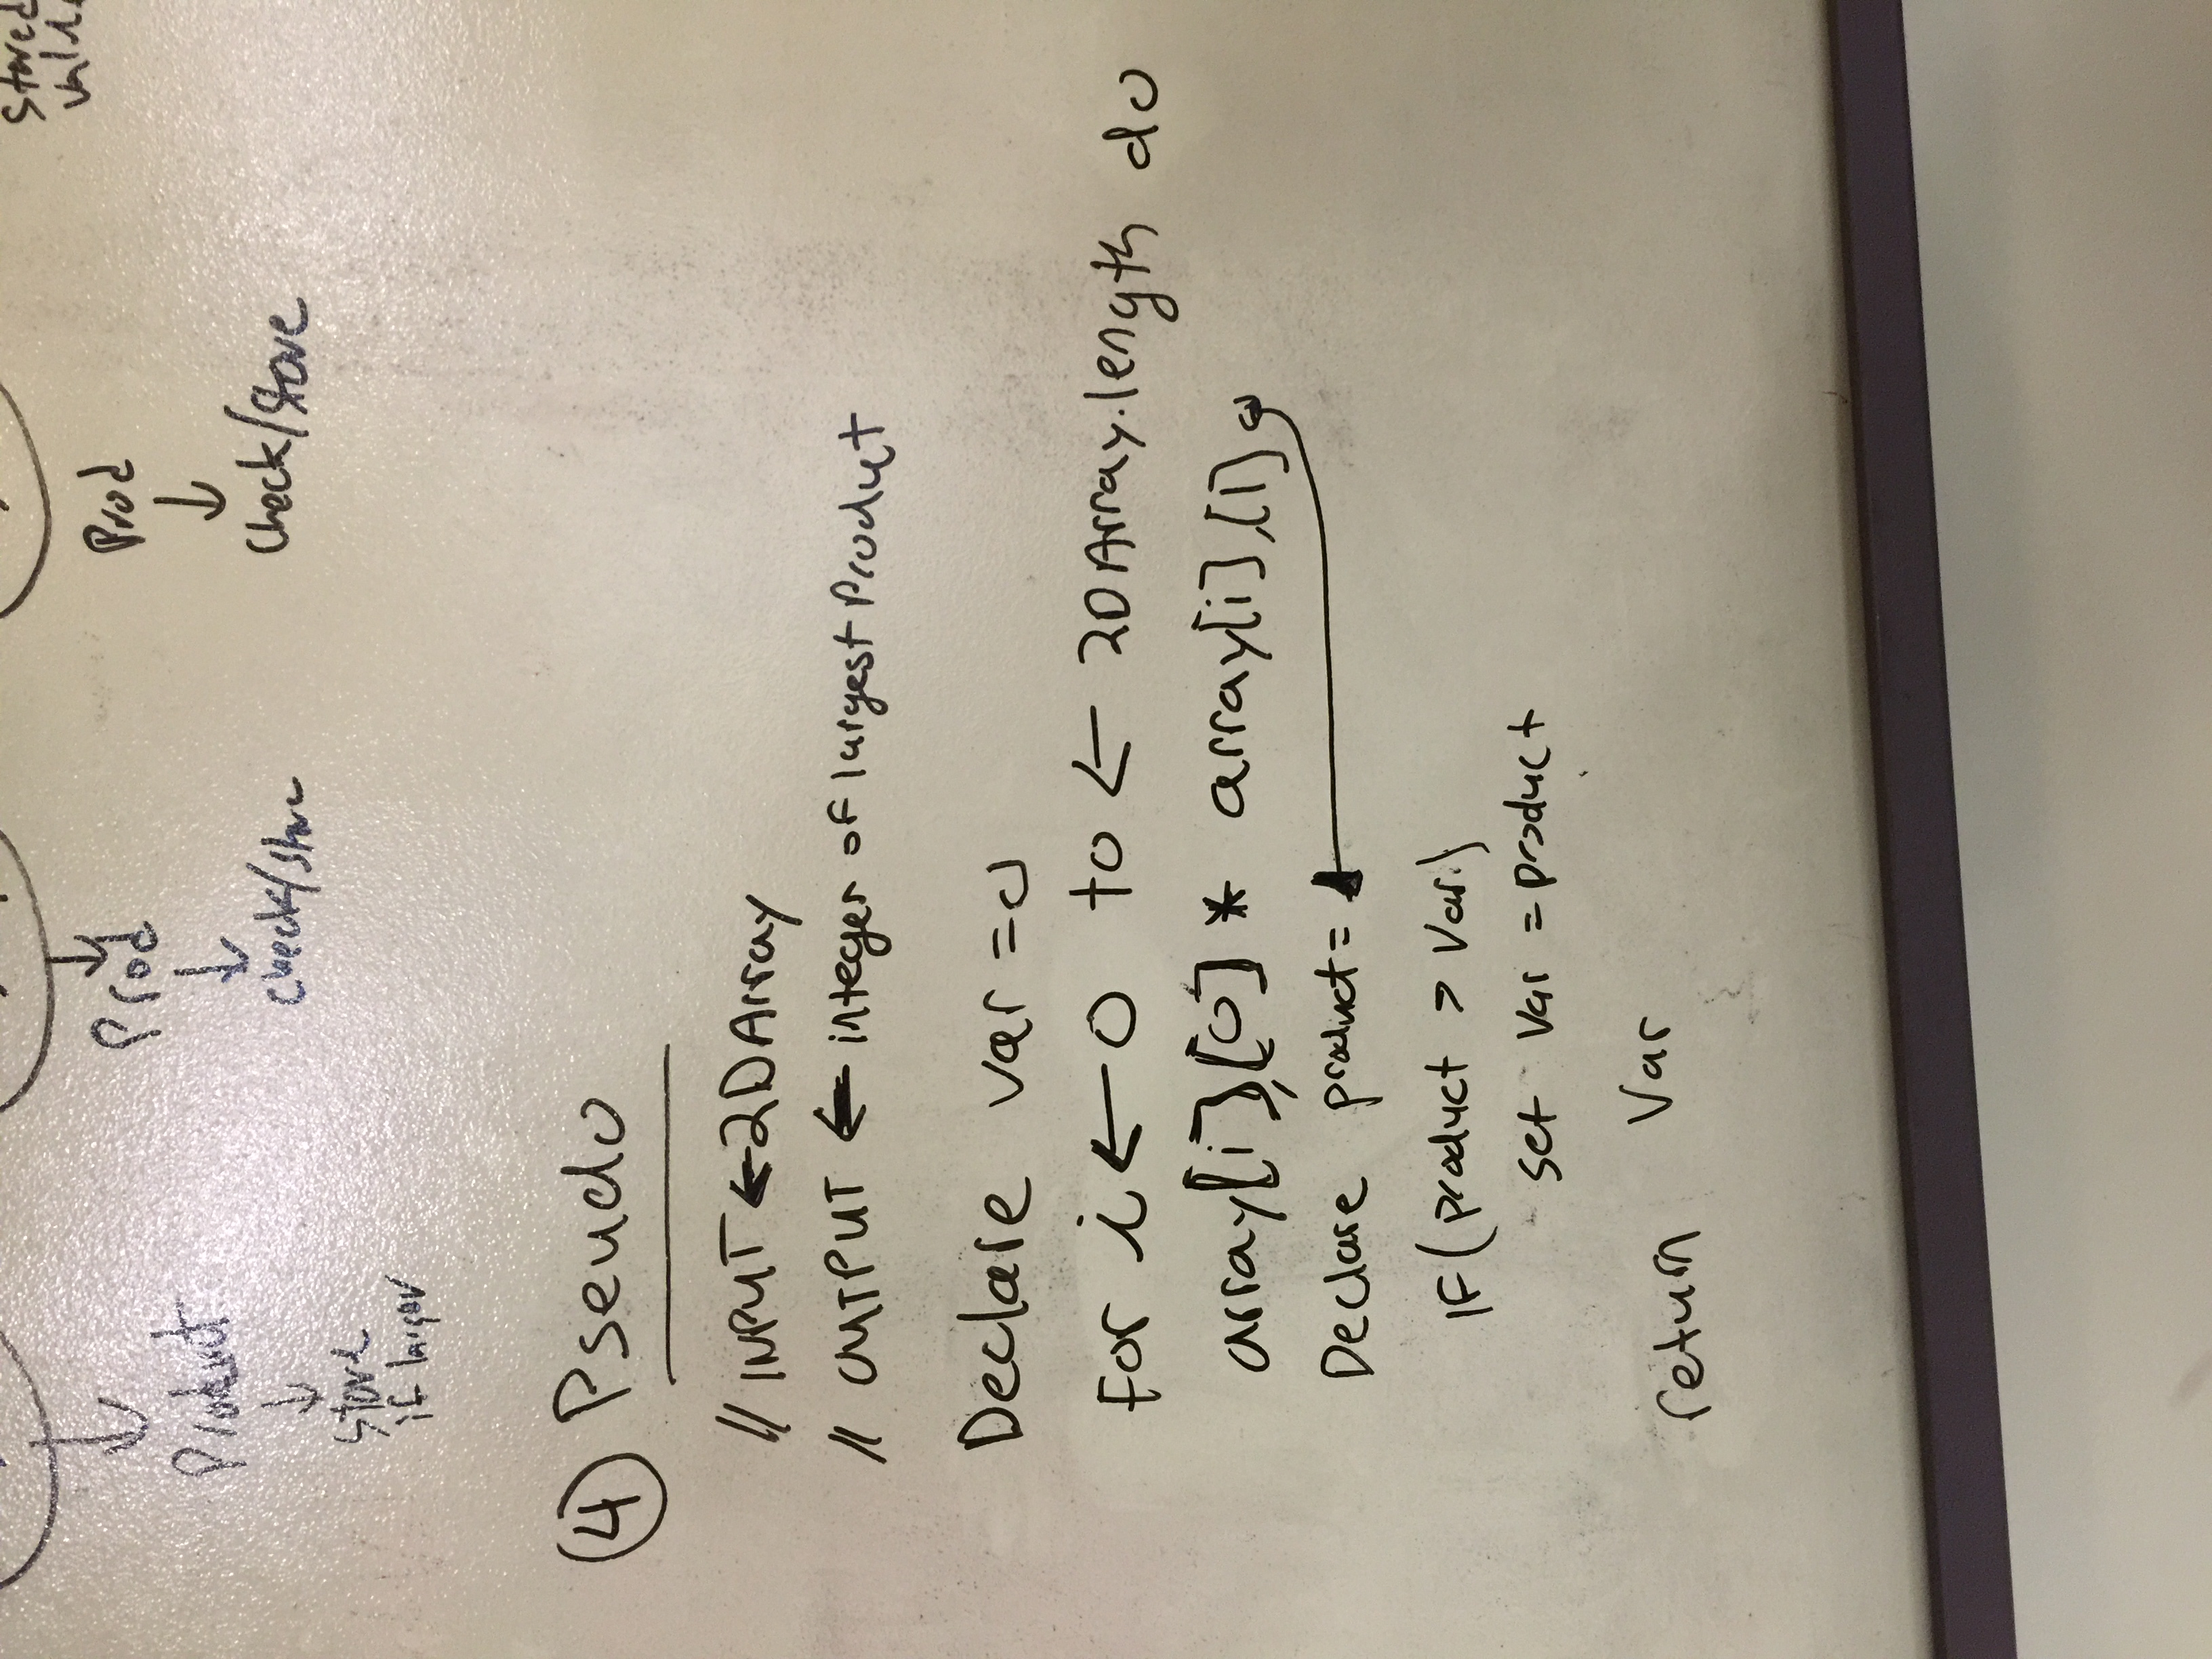 Stored
Prod
Prod
Product
Check/Store
Check/Store
Store
if larger
4 Pseudo
// INPUT ← 2DArray
// OUTPUT ← integer of largest Product
Declare var = 0
For i ← 0 to ← 2DArray.length do
array[i],[0] * array[i],[1]
Declare product =
IF (product > Var)
set Var = product
return Var